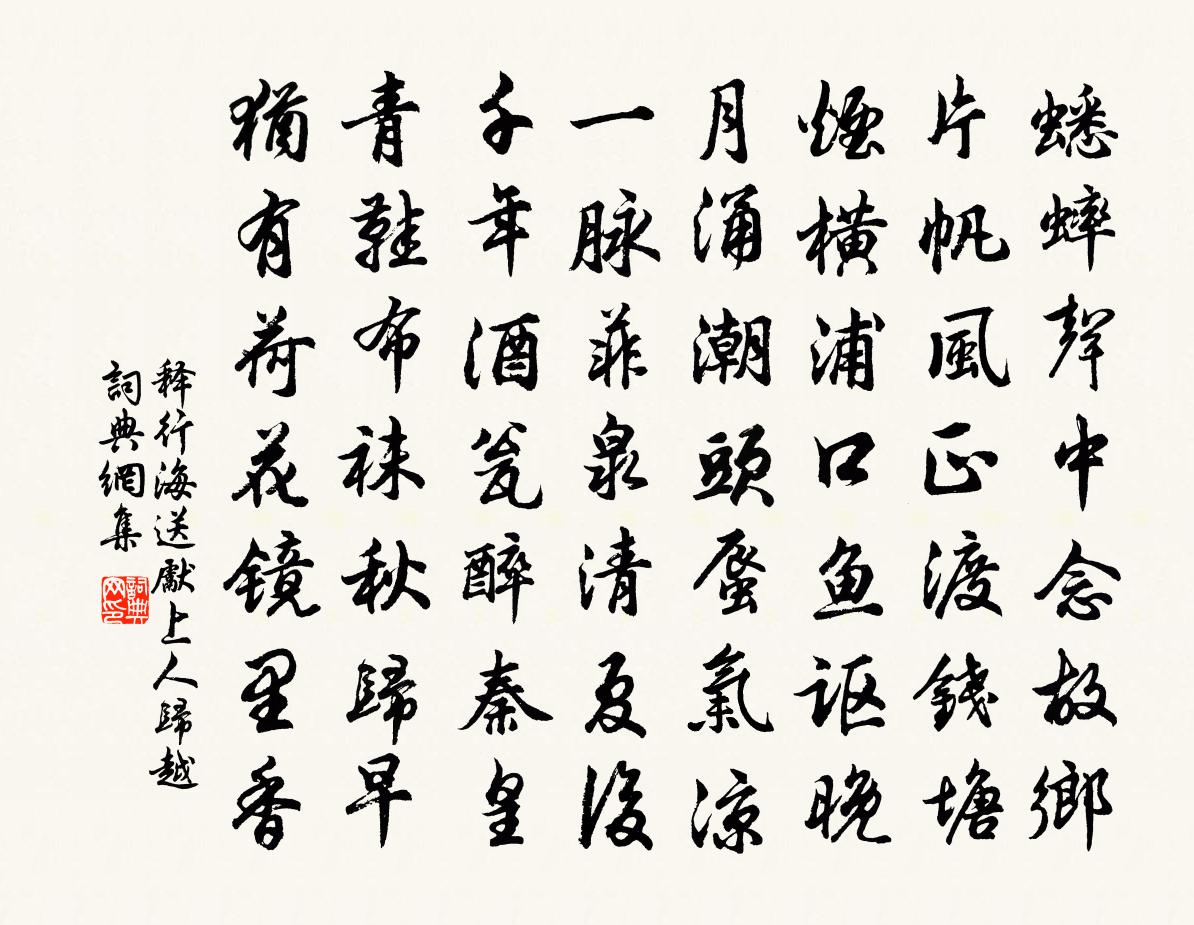 蟋蟀聲中念故鄉
片帆風正渡錢塘
煙橫浦口魚謳晚
月涌潮頭蜃氣涼
一脉菲泉清夏後
千年酒瓮醉秦皇
青鞋布袜秋歸早
猶有荷花镜里香
释行海送獻上人歸越
詞典網集
詞典网印